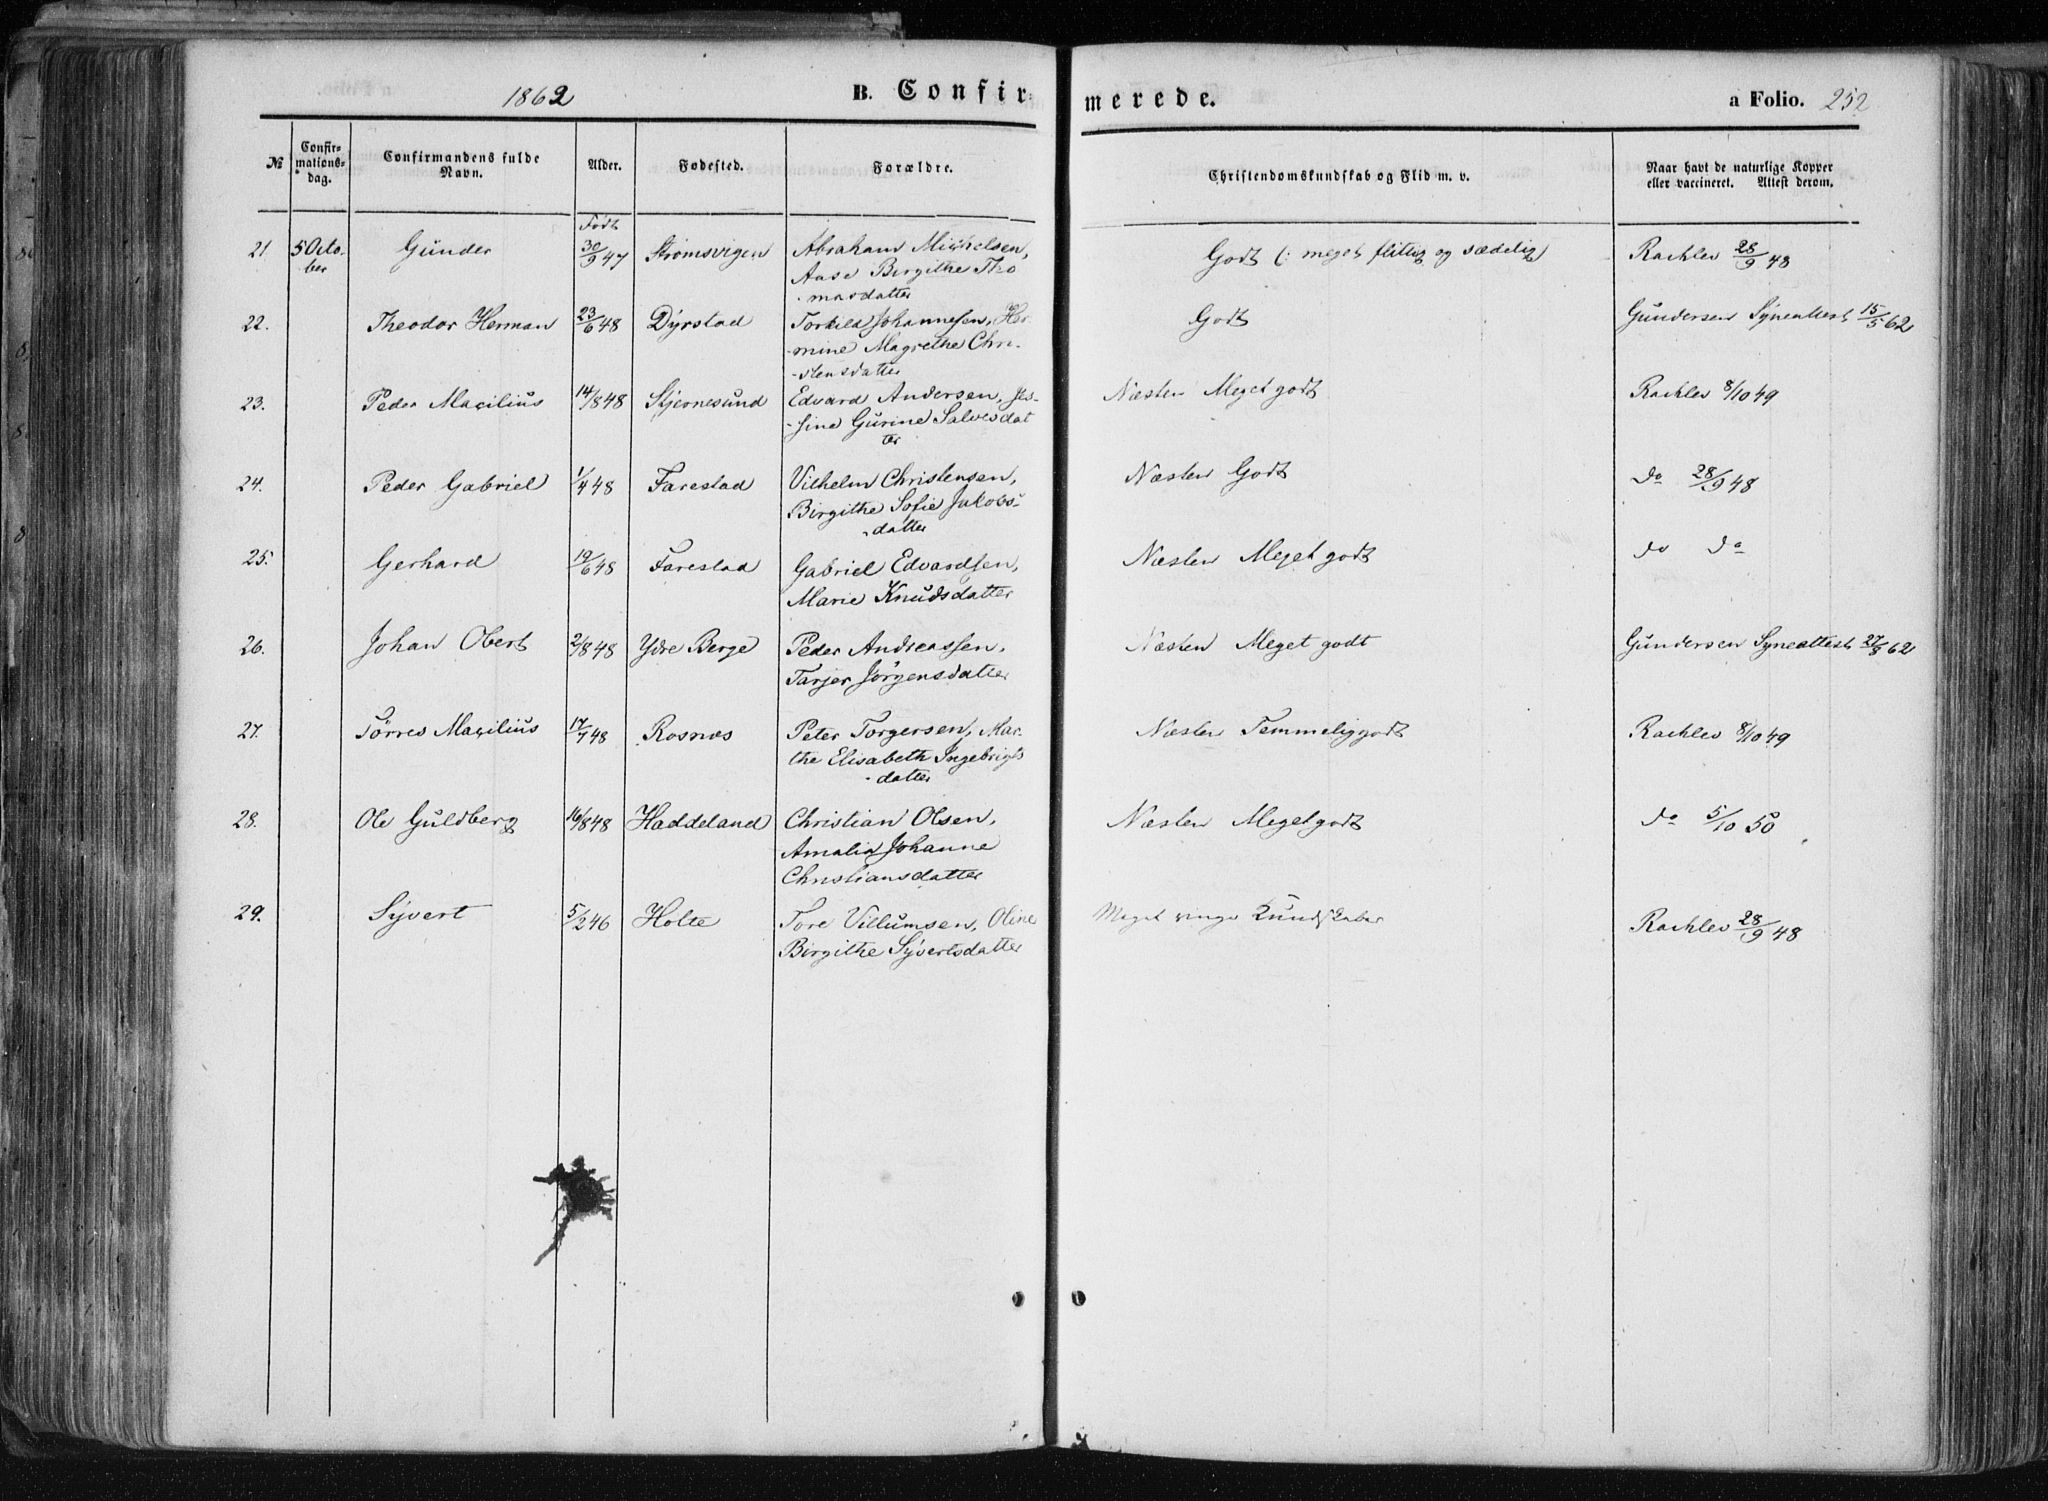 1862 B. Confirmerede. a Folio. 252
№ Confir-mations-dag. Confirmandens fulde Navn. Alder. Fødested. Forældre. Christendomskundskab og Flid m. v. Naar havt de naturlige Kopper eller vaccineret. Attest derom.
Født
21 5 Octo- Gunder 30/9 47 Strømsvigen Abraham Michelsen, Godt (: meget flittig og sædelig) Rachlev 28/9 48
ber Aase Birgithe Tho
-masdatter
22. Theodor Herman 23/6 48 Dyrstad Torkild Johannesen, Her Godt Gundersen Syneattest 15/5 62
-mine Magrethe Chri-
-stensdatter
23. Peder Maçilius 14/8 48 Stjernesund Edvard Andersen, Jes- Næsten Meget godt Rachlev 8/10 49
-sine Gurine Salvesdat
ter
24. Peder Gabriel 1/4 48 Farestad Vilhelm Christensen, Næsten Godt do 28/9 48
Birgithe Sofie Jakobs-
-datter
25. Gerhard 19/6 48 Farestad Gabriel Edvardsen, Næsten Meget godt do do
Marie Knudsdatter
26. Johan Obert 2/8 48 Ydre Berge Peder Andreassen, Næsten Meget godt Gundersen Syneattest 27/8 62
Tarjer Jörgensdatter
27. Törres Maçilius 17/7 48 Rosnæs Peter Torgersen, Mar- Næsten Temmelig godt Rachlev 8/10 49
the Elisabeth Ingebrigts
-datter
28. Ole Guldberg 16/8 48 Haddeland Christian Olsen, Næsten Meget godt do 5/10 50
Amalia Johanne
Christiansdatter
29. Syvert 5/2 46 Holte Tore Villumsen, Oline Meget ringe Kundskaber Rachlev 28/9 48
Birgithe Syvertsdatter